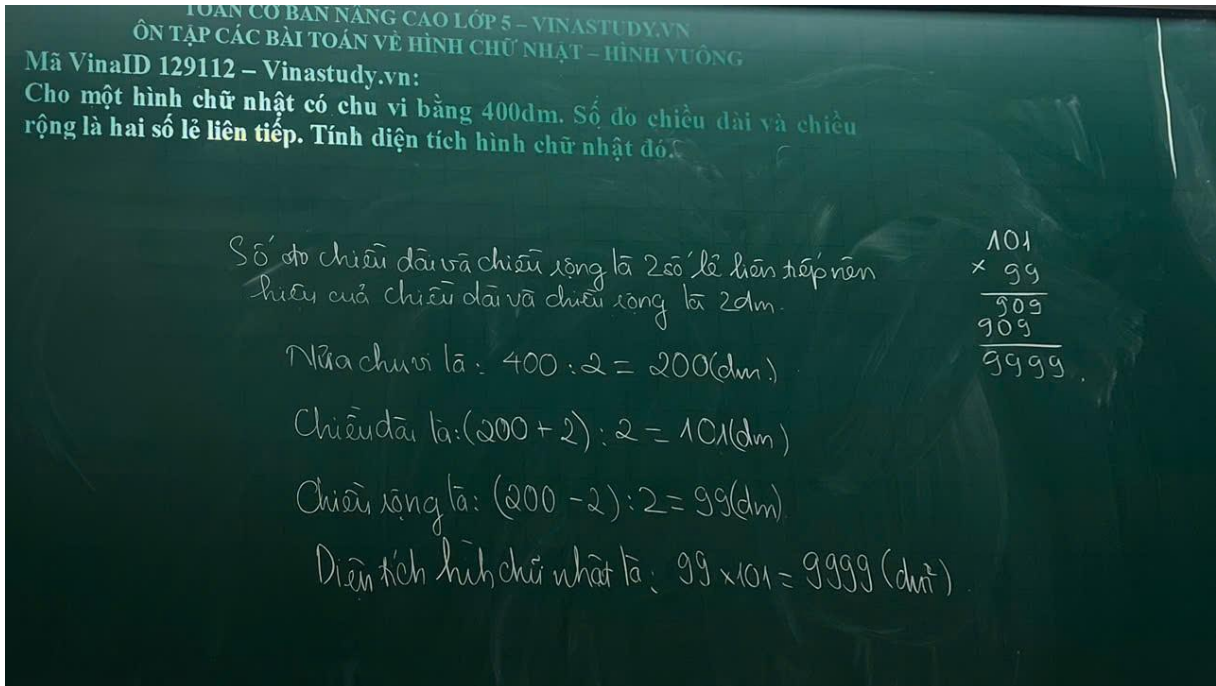 TOÁN CƠ BẢN NÂNG CAO LỚP 5 – VINASTUDY.VN
ÔN TẬP CÁC BÀI TOÁN VỀ HÌNH CHỮ NHẬT – HÌNH VUÔNG
Mã VinaID 129112 – Vinastudy.vn:
Cho một hình chữ nhật có chu vi bằng 400dm. Số đo chiều dài và chiều
rộng là hai số lẻ liên tiếp. Tính diện tích hình chữ nhật đó.
Số đo chiều dài và chiều rộng là 2 số lẻ liên tiếp nên
hiệu của chiều dài và chiều rộng là 2dm.
Nửa chu vi là: 400 : 2 = 200(dm)
Chiều dài là: (200 + 2) : 2 = 101(dm)
Chiều rộng là: (200 - 2) : 2 = 99(dm)
Diện tích hình chữ nhật là: 99 x 101 = 9999 (dm²)
101
× 99
909
909
9999.